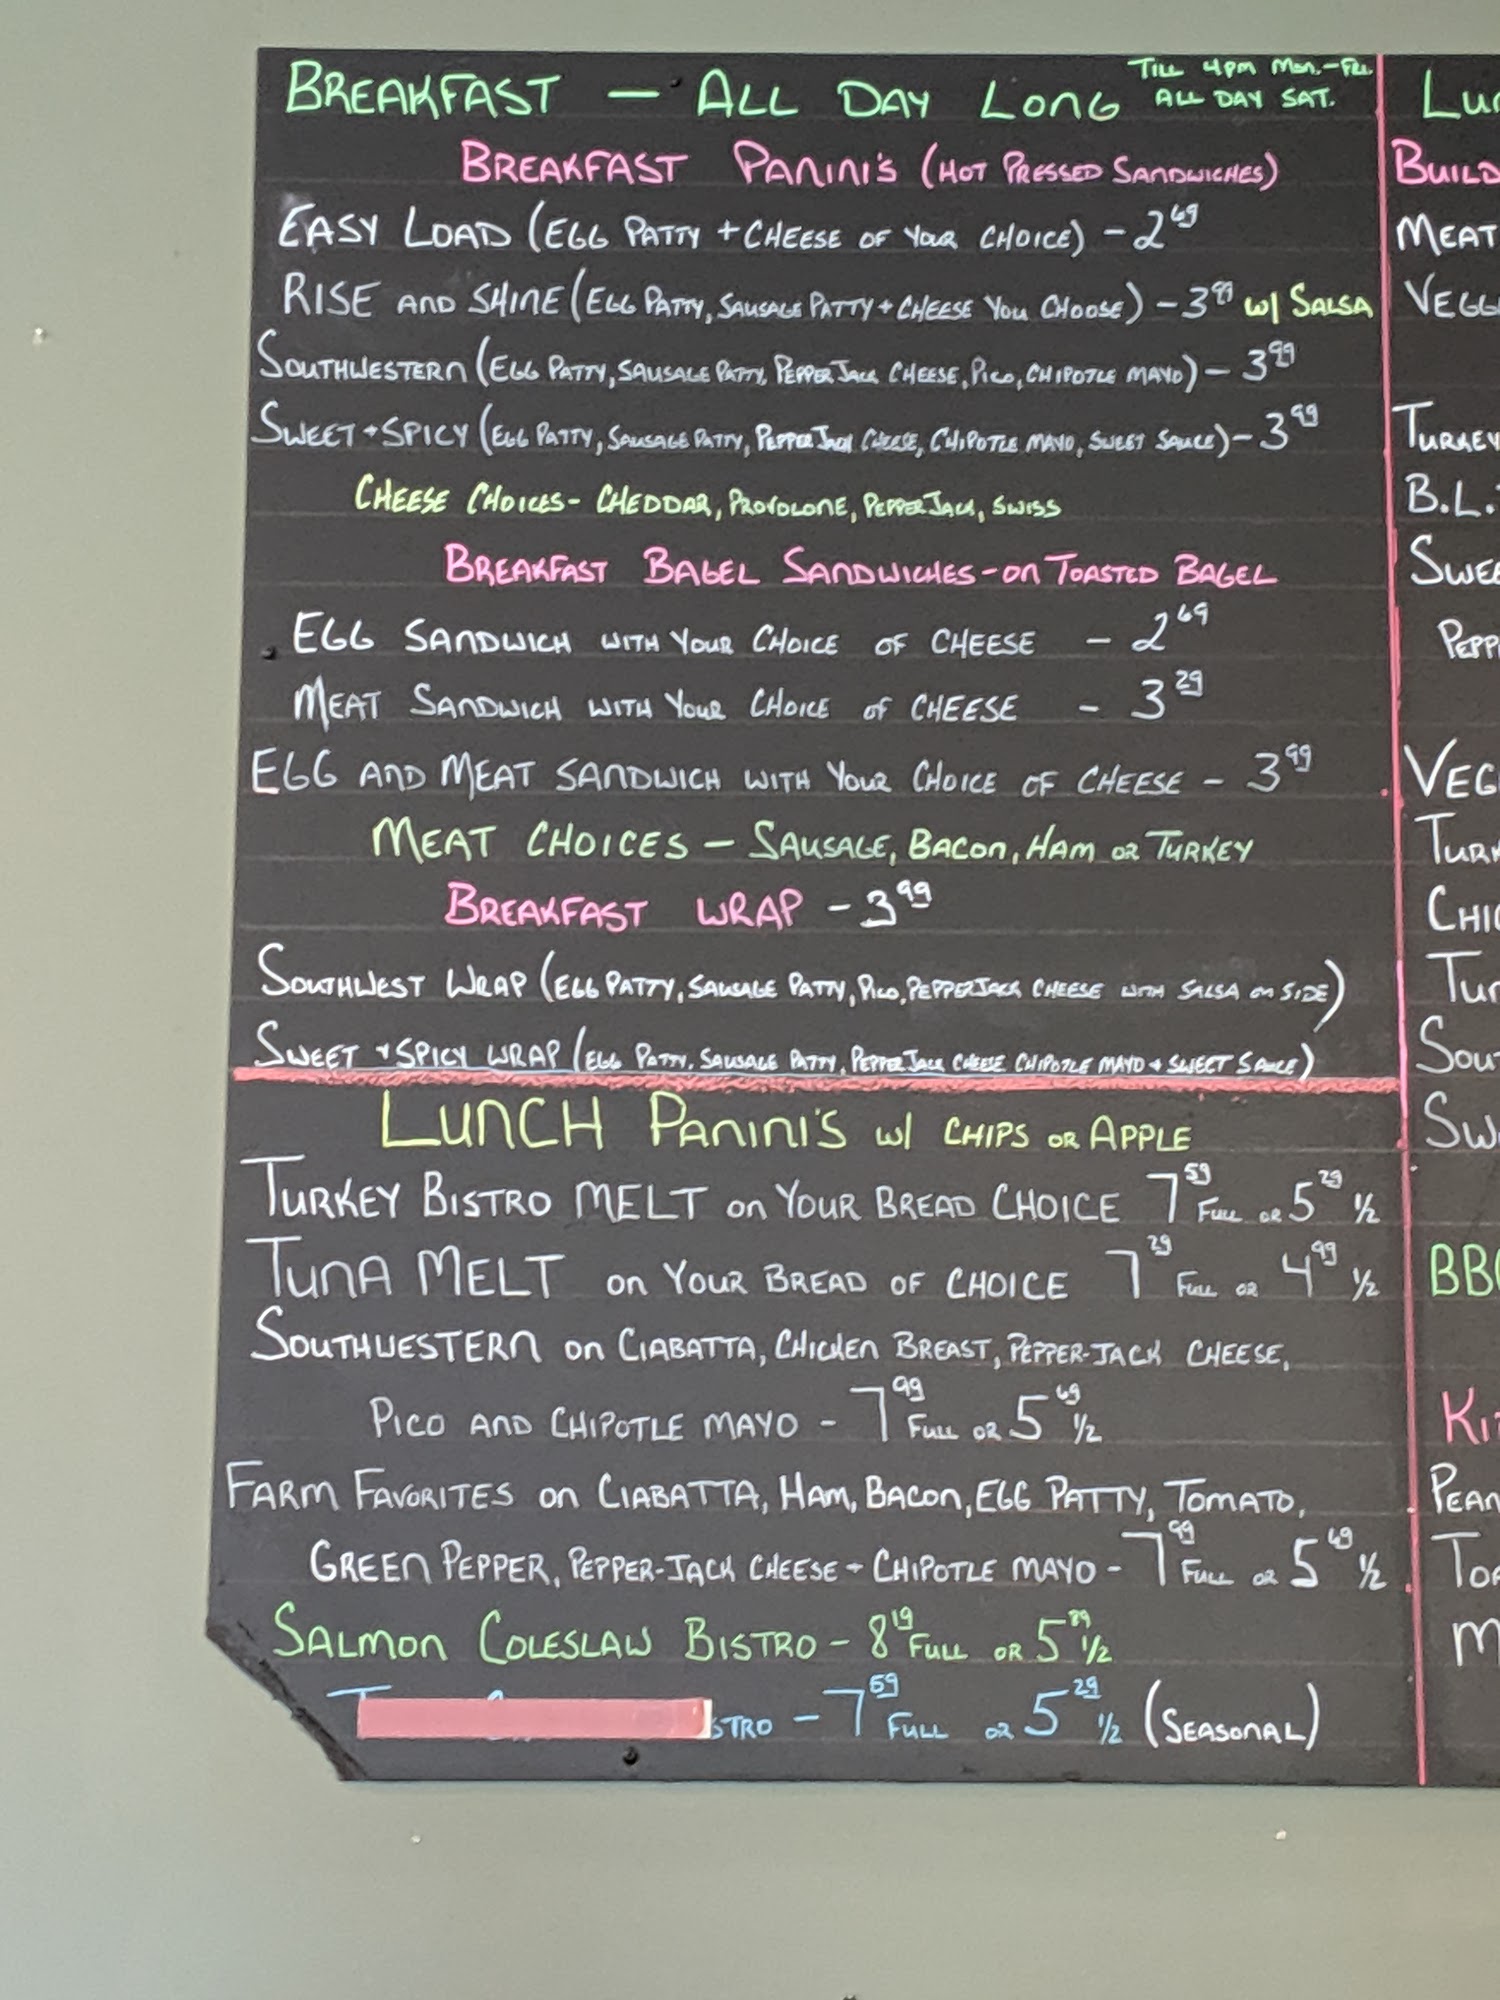 BREAKFAST — ALL DAY LONG TILL 4PM MON.-FRI.
ALL DAY SAT.
BREAKFAST PANINI'S (HOT PRESSED SANDWICHES)
EASY LOAD (EGG PATTY + CHEESE OF YOUR CHOICE) - 2 69
RISE AND SHINE (EGG PATTY, SAUSAGE PATTY + CHEESE YOU CHOOSE) - 3 99 W/ SALSA
SOUTHWESTERN (EGG PATTY, SAUSAGE PATTY, PEPPER JACK CHEESE, PICO, CHIPOTLE MAYO) - 3 99
SWEET + SPICY (EGG PATTY, SAUSAGE PATTY, PEPPER JACK CHEESE, CHIPOTLE MAYO, SWEET SAUCE) - 3 99
CHEESE CHOICES - CHEDDAR, PROVOLONE, PEPPER JACK, SWISS
BREAKFAST BAGEL SANDWICHES - ON TOASTED BAGEL
EGG SANDWICH WITH YOUR CHOICE OF CHEESE - 2 69
MEAT SANDWICH WITH YOUR CHOICE OF CHEESE - 3 29
EGG AND MEAT SANDWICH WITH YOUR CHOICE OF CHEESE - 3 99
MEAT CHOICES - SAUSAGE, BACON, HAM OR TURKEY
BREAKFAST WRAP - 3 99
SOUTHWEST WRAP (EGG PATTY, SAUSAGE PATTY, PICO, PEPPER JACK CHEESE WITH SALSA ON SIDE)
SWEET + SPICY WRAP (EGG PATTY, SAUSAGE PATTY, PEPPER JACK CHEESE CHIPOTLE MAYO + SWEET SAUCE)
LUNCH PANINI'S W/ CHIPS OR APPLE
TURKEY BISTRO MELT ON YOUR BREAD CHOICE 7 59 FULL OR 5 29 1/2
TUNA MELT ON YOUR BREAD OF CHOICE 7 29 FULL OR 4 99 1/2
SOUTHWESTERN ON CIABATTA, CHICKEN BREAST, PEPPER-JACK CHEESE,
PICO AND CHIPOTLE MAYO - 7 99 FULL OR 5 69 1/2
FARM FAVORITES ON CIABATTA, HAM, BACON, EGG PATTY, TOMATO,
GREEN PEPPER, PEPPER-JACK CHEESE + CHIPOTLE MAYO - 7 99 FULL OR 5 69 1/2
SALMON COLESLAW BISTRO - 8 19 FULL OR 5 89 1/2
STRO - 7 59 FULL OR 5 29 1/2 (SEASONAL)
BUILD
MEAT
VEGG
TURKEY
B.L.
SWEE
PEPP
VEG
TURK
CHIC
TUR
SOUT
SW
BB
KI
PEAN
TOA
M